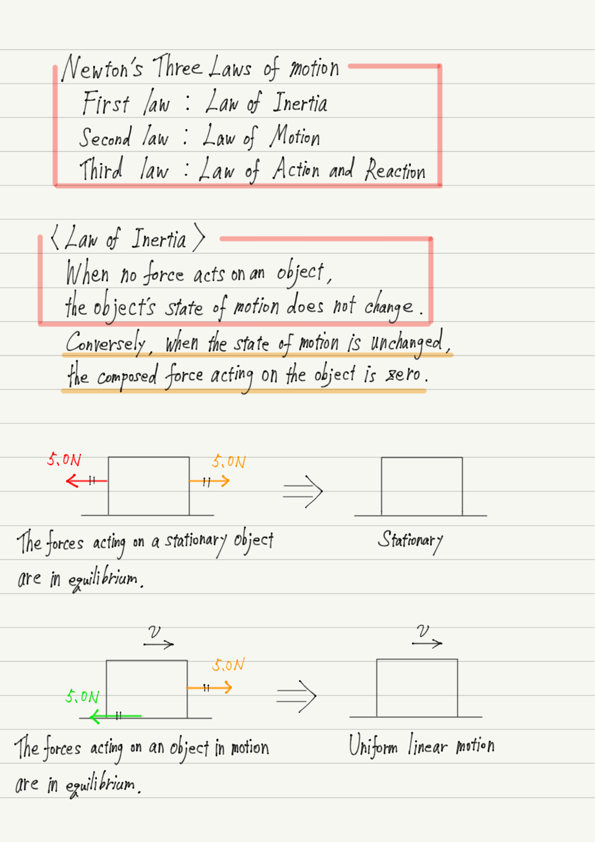 Newton's Three Laws of motion
First law : Law of Inertia
Second law : Law of Motion
Third law : Law of Action and Reaction
〈Law of Inertia〉
When no force acts on an object,
the object's state of motion does not change.
Conversely, when the state of motion is unchanged,
the composed force acting on the object is zero.
5.0N 5.0N
The forces acting on a stationary object
are in equilibrium.
Stationary
v
5.0N
5.0N
v
The forces acting on an object in motion
are in equilibrium.
Uniform linear motion